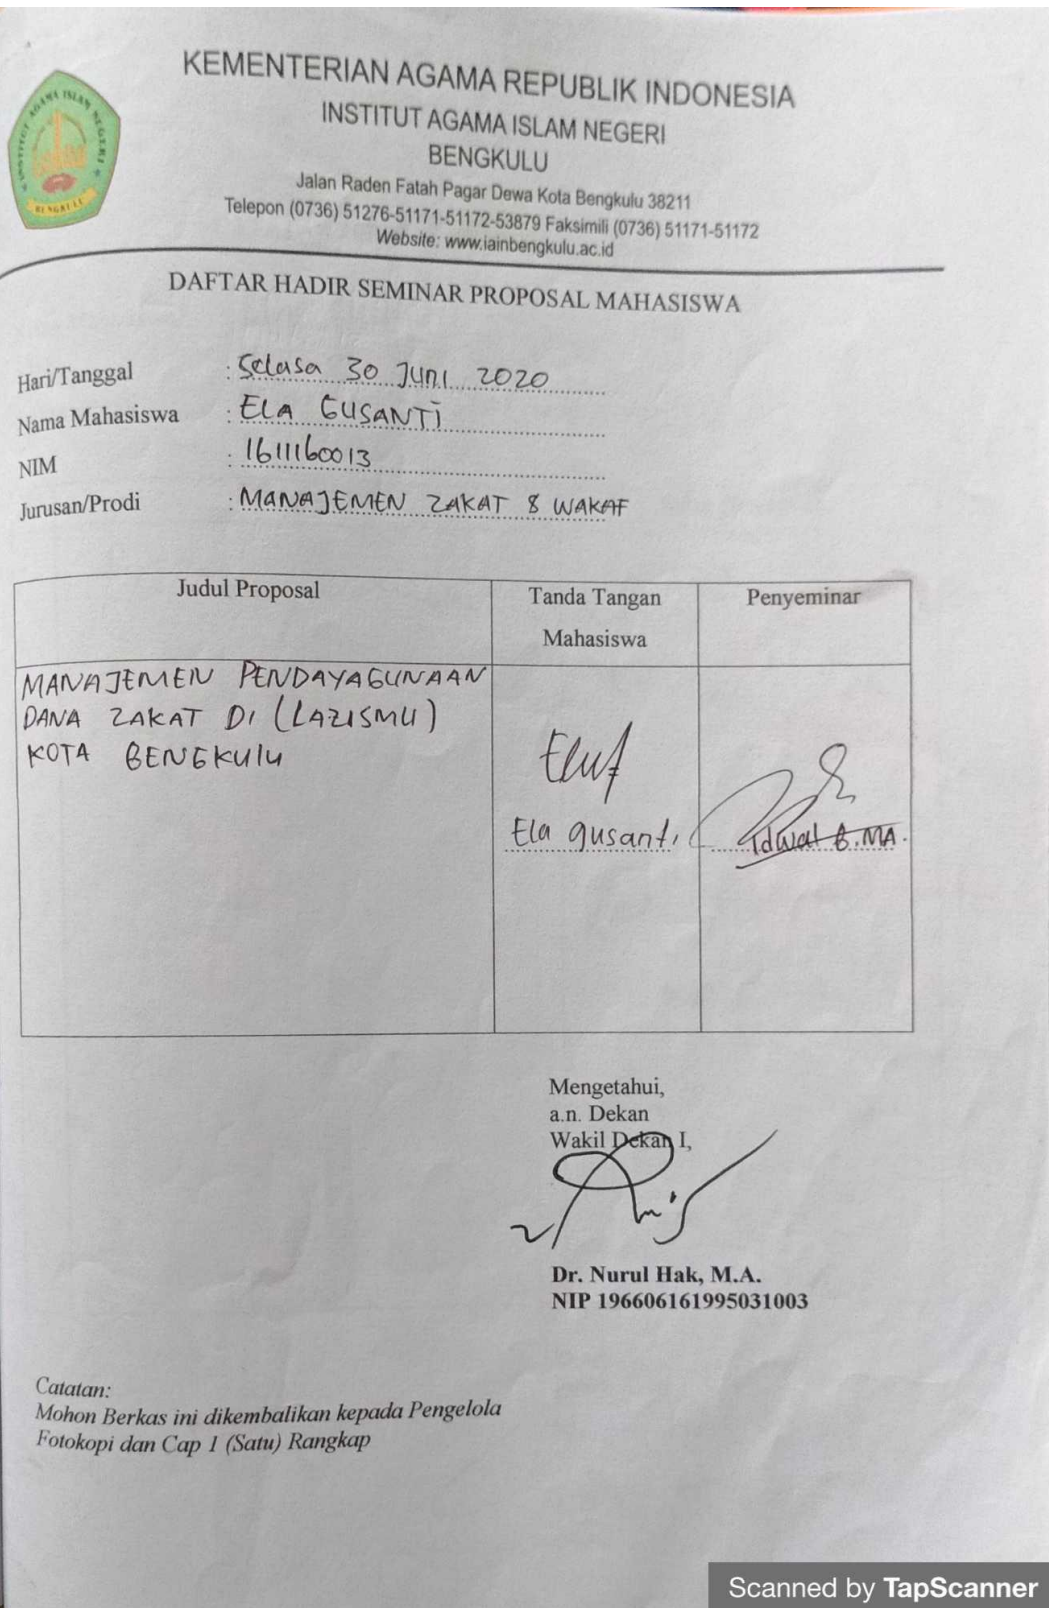 KEMENTERIAN AGAMA REPUBLIK INDONESIA
INSTITUT AGAMA ISLAM NEGERI
BENGKULU
Jalan Raden Fatah Pagar Dewa Kota Bengkulu 38211
Telepon (0736) 51276-51171-51172-53879 Faksimili (0736) 51171-51172
Website: www.iainbengkulu.ac.id
INSTITUT AGAMA ISLAM NEGERI
BENGKULU
DAFTAR HADIR SEMINAR PROPOSAL MAHASISWA
Hari/Tanggal : Selasa 30 Juni 2020
Nama Mahasiswa : ELA GUSANTI
NIM : 1611160013
Jurusan/Prodi : MANAJEMEN ZAKAT & WAKAF
Judul Proposal
Tanda Tangan
Mahasiswa
Penyeminar
MANAJEMEN PENDAYAGUNAAN
DANA ZAKAT DI (LAZISMU)
KOTA BENGKULU
Ela gusanti
Idwal B.MA.
Mengetahui,
a.n. Dekan
Wakil Dekan I,
Dr. Nurul Hak, M.A.
NIP 196606161995031003
Catatan:
Mohon Berkas ini dikembalikan kepada Pengelola
Fotokopi dan Cap 1 (Satu) Rangkap
Scanned by TapScanner